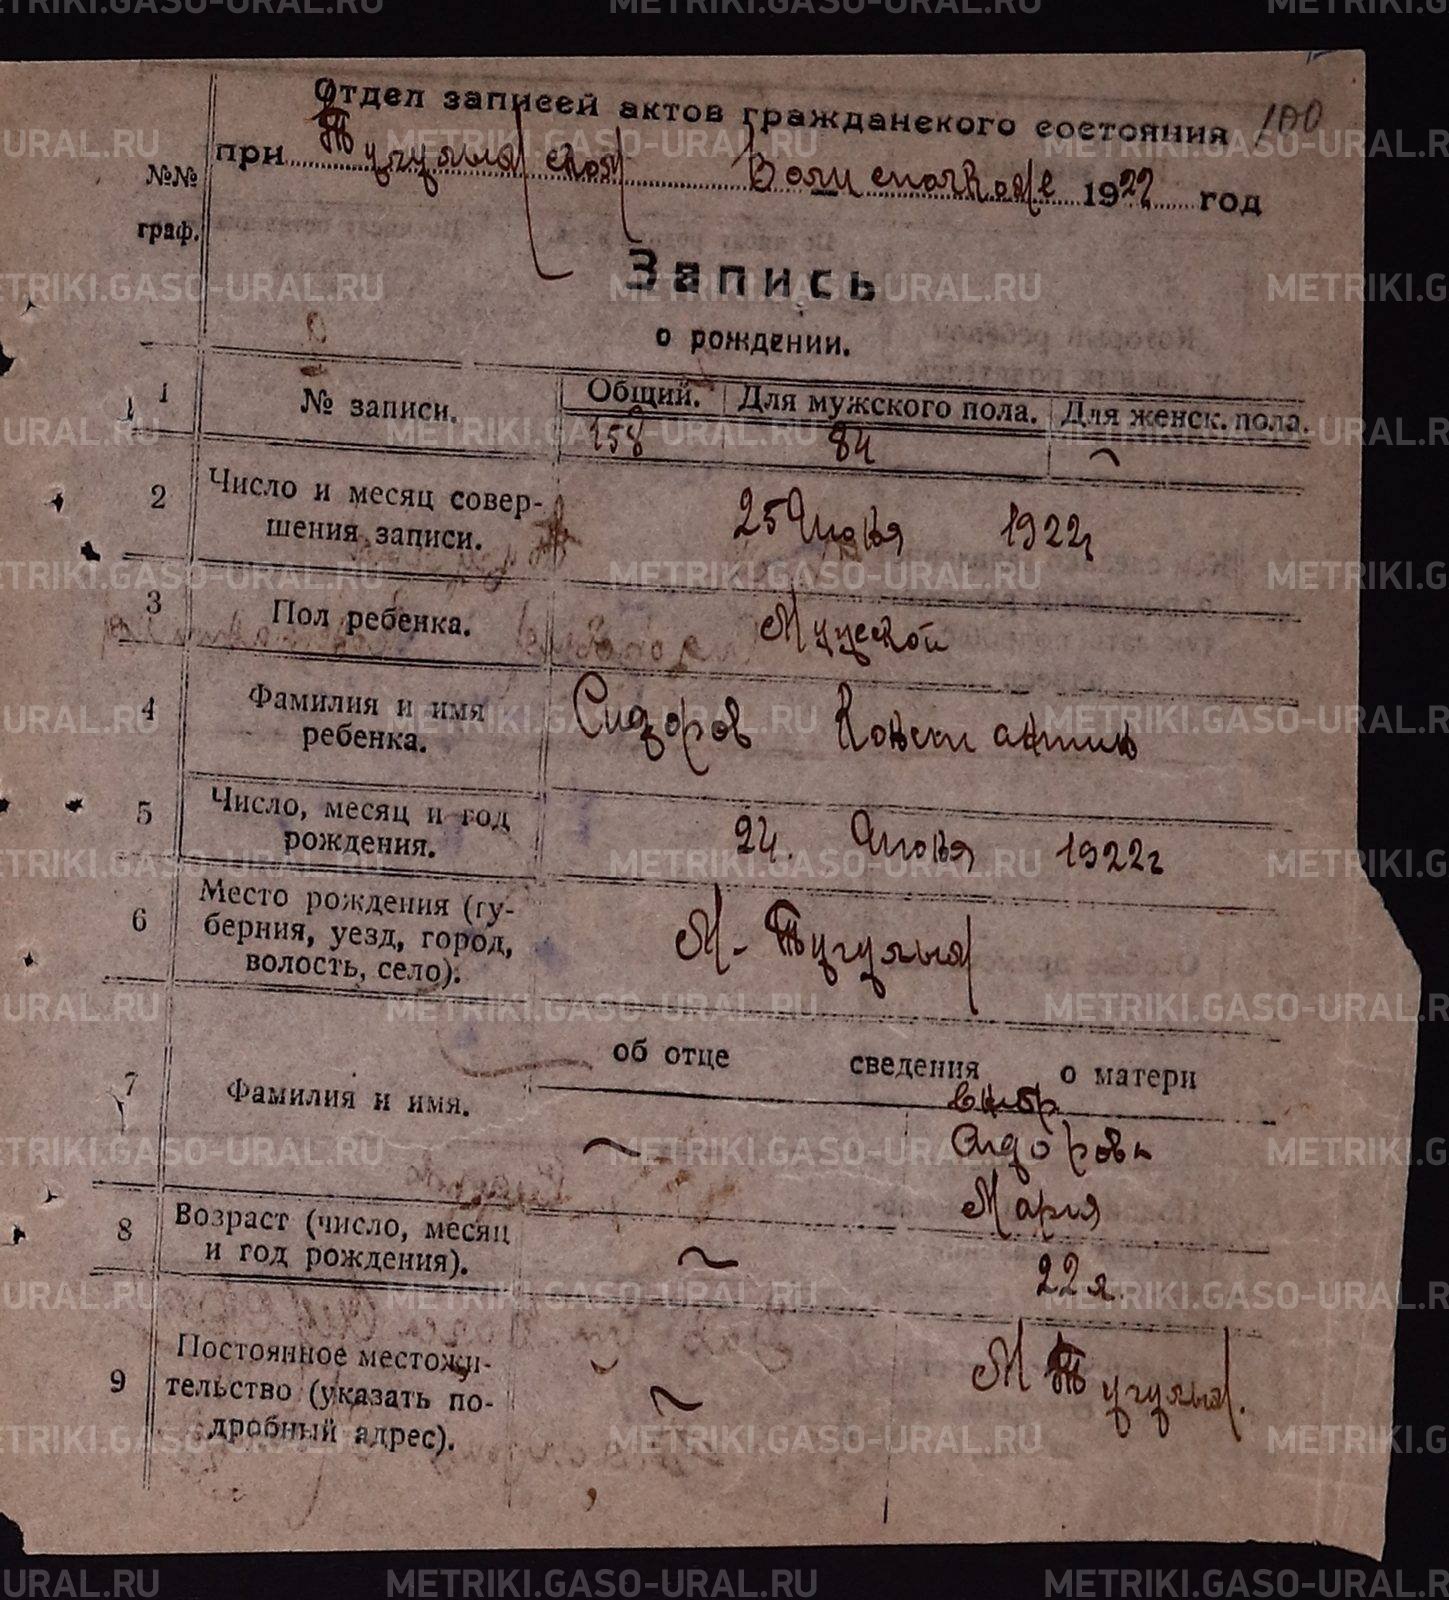 Отдел записей актов гражданского состояния 100
при Тугулымской Волисполкоме 1922 год
№№
граф.
Запись
о рождении.
1 № записи. Общий. Для мужского пола. Для женск. пола.
158 84 ~
2 Число и месяц совер-
шения записи. 25 Июня 1922г
3 Пол ребенка. Мужской
4 Фамилия и имя
ребенка. Сидоров Константин
5 Число, месяц и год
рождения. 24. Июня 1922г
6 Место рождения (гу-
берния, уезд, город,
волость, село). М-Тугулым
об отце сведения о матери
7 Фамилия и имя. ~ внбр
Сидорова
Мария
8 Возраст (число, месяц
и год рождения). ~ 22 л.
9 Постоянное местожи-
тельство (указать по-
дробный адрес). ~ М Тугулым.
METRIKI.GASO-URAL.RU